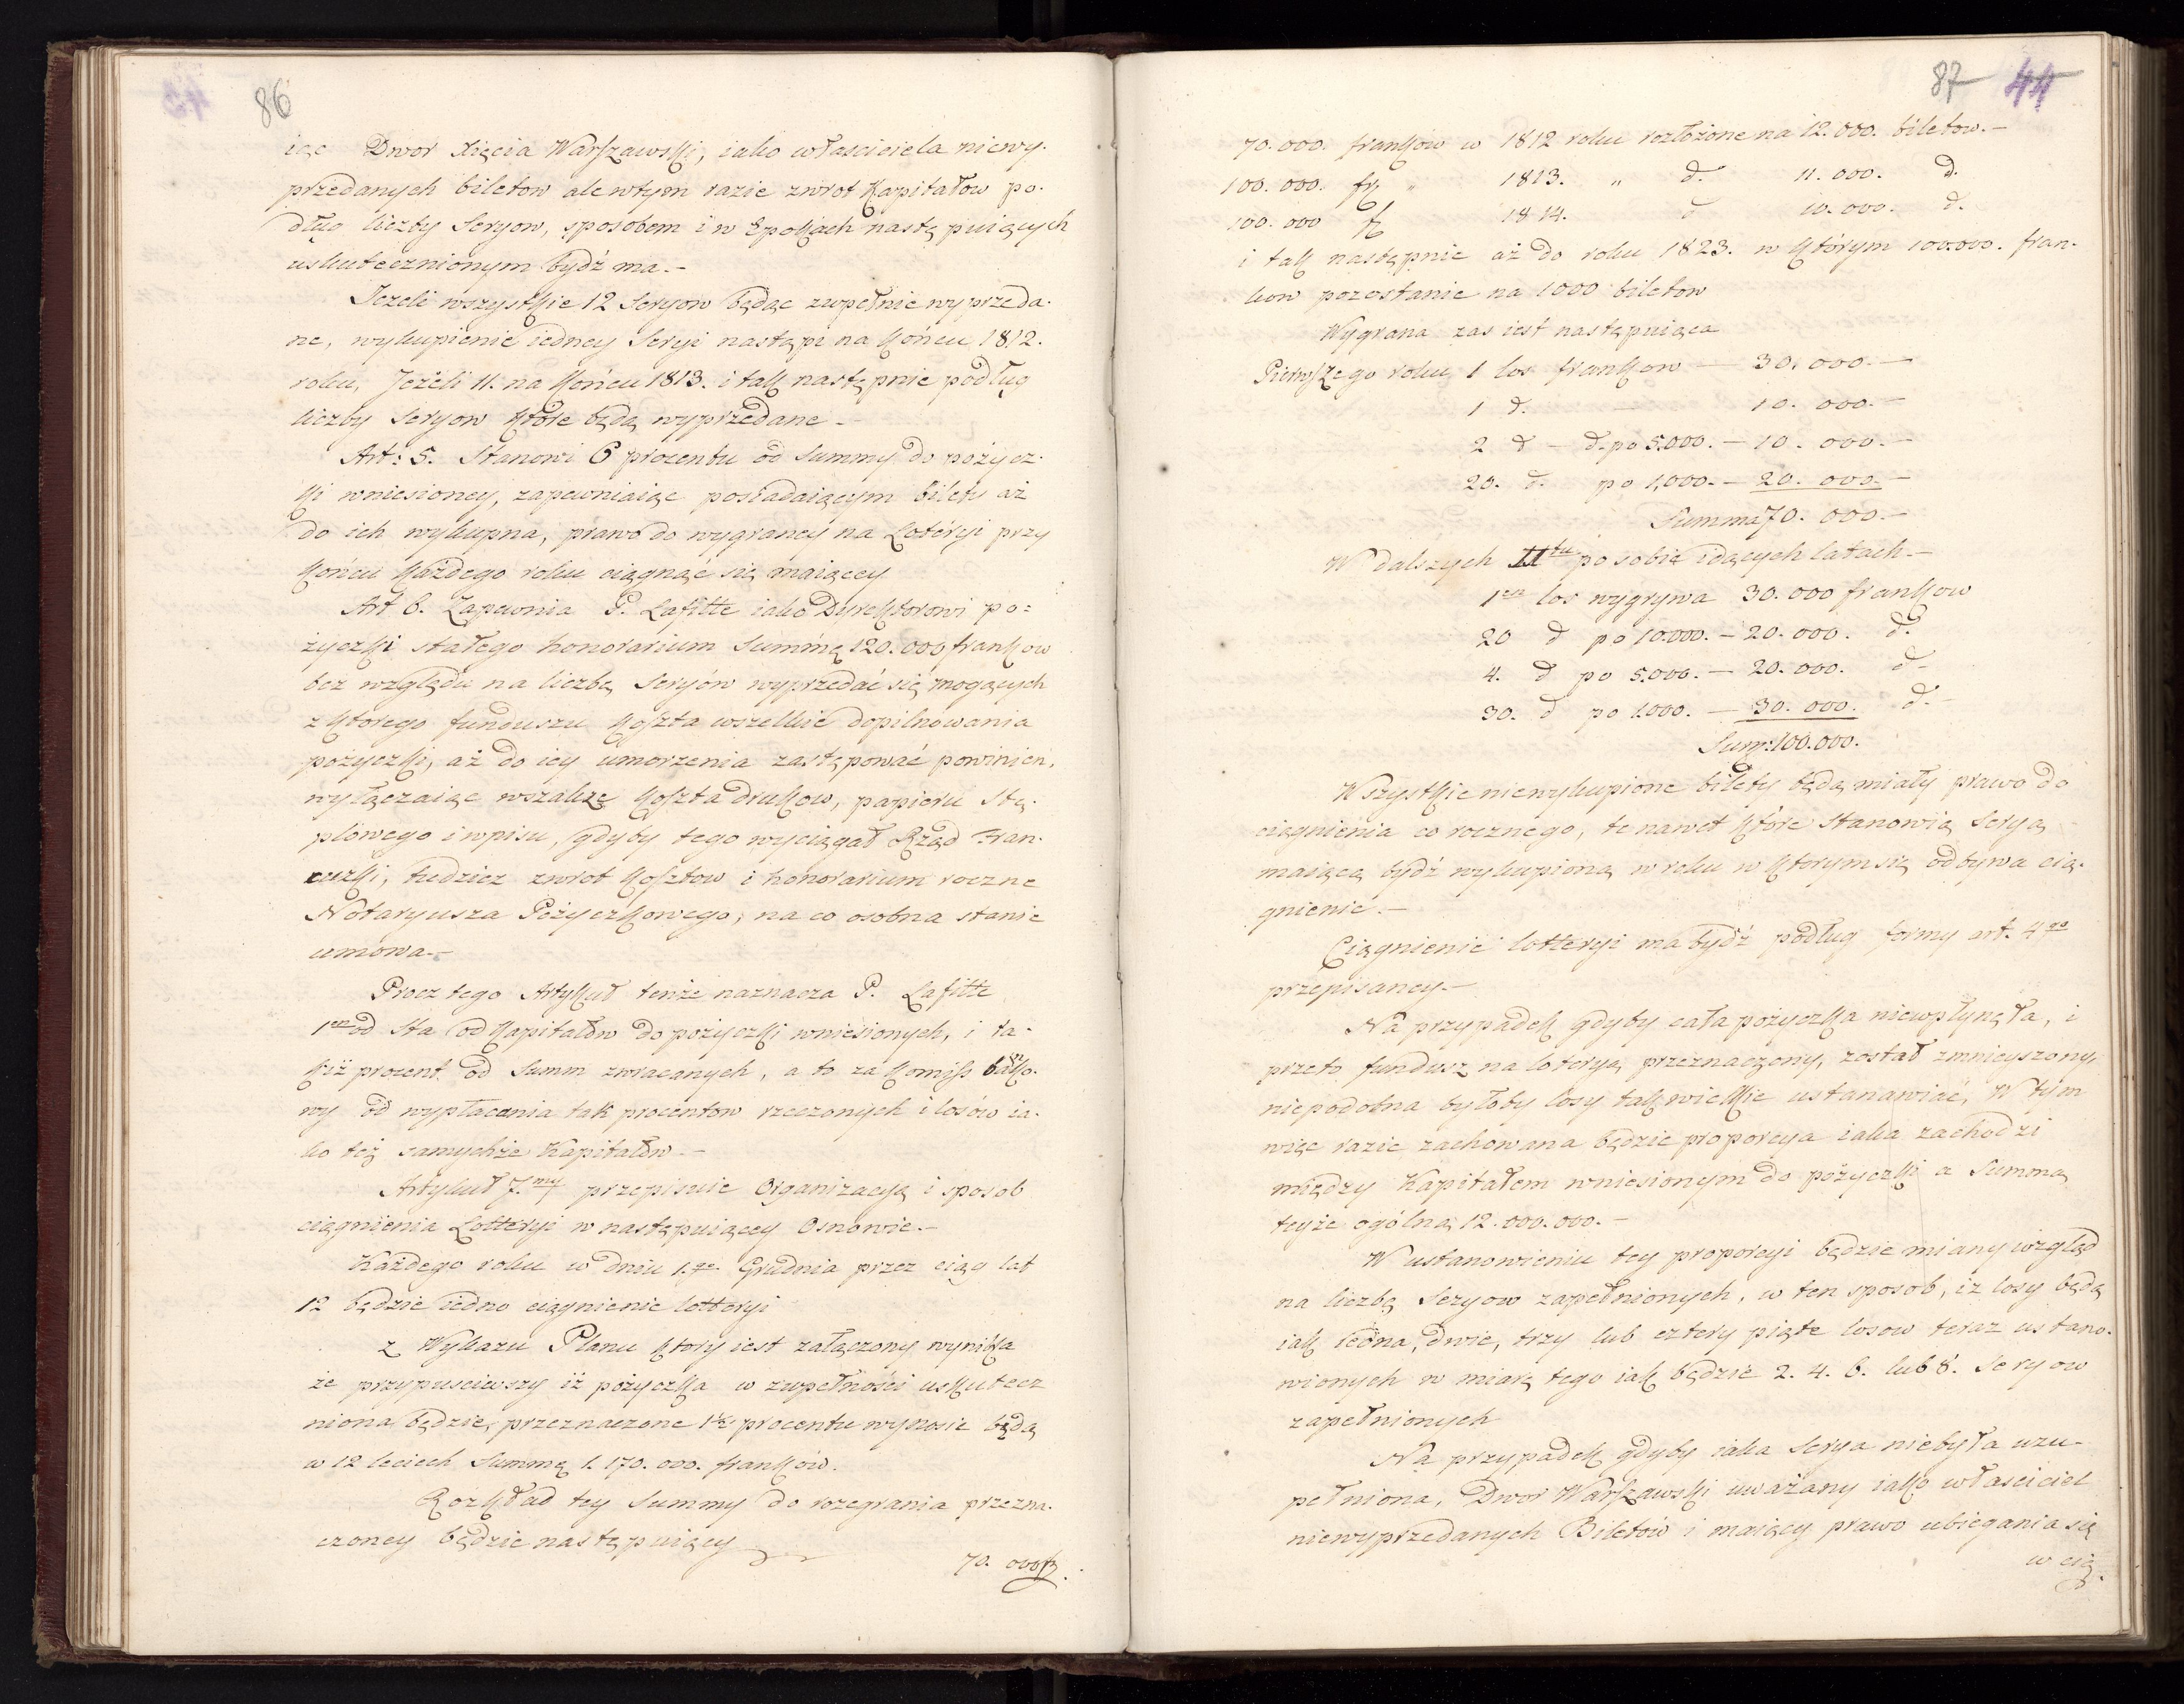 86
iąc Dwor Xięcia Warszawski, iako własciciela niewy-
przedanych biletow ale wtym razie zwrot Kapitałow po-
dług liczby Seryow, sposobem i w Epokach nastę puiących
uskutecznionym bydź ma.-
Jeżeli wszystkie 12 Seryow będąc zupełnie wyprzeda-
ne, wykupienie iedney Seryi nastąpi na końcu 1812.
roku, Jeżeli 11. na końcu 1813. i tak następnie podług
liczby Seryow które będą wyprzedane -
Art: 5. Stanowi 6 procentu od Summy do pożycz-
ki wniesioney, zapewniaiąc posiadaiącym bilety aż
do ich wykupna, prawo do wygraney na Loteryi przy
końcu każdego roku ciągnąć się maiącey
Art 6. Zapewnia P. Lafitte iako Dyrektorowi po=
życzki stałego honorarium Summę 120.000 frankow
bez względu na liczbę Seryów wyprzedać się mogących
z ktorego funduszu koszta wszelkie dopilnowania
pożyczki, aż do iey umorzenia zastępować powinien,
wyłączaiąc wszakże koszta drukow, papieru Stę-
plowego i wpisu, gdyby tego wyciągał Rząd Fran-
cuzki, tudzież zwrot kosztow i honorarium roczne
Notaryusza Pożyczkowego, na co osobna stanie
umowa.-
Procz tego Artykuł tenże naznacza P. Lafitte
1en od Sta od Kapitałow do pożyczki wniesionych, i ta-
kiż procent od Summ zwracanych, a to za komiss banko-
wy od wypłacania tak procentow rzeczonych i losów ia-
ko też samychże Kapitałow.-
Artykuł 7.my przepisuie Organizacyą i sposob
ciągnienia Lotteryi w następuiącey Osnowie.-
Każdego roku w dniu 1.go Grudnia przez ciąg lat
12 będzie iedno ciągnienie lotteryi
z Wykazu Planu ktory iest załączony wynika
że przypusciwszy iż pożyczka w zupełności uskutecz
niona będzie, przeznaczone procentu wynosić będą
w 12 leciech Summę 1.170.000. franków.
Rozkład tey Summy do rozegrania przezna-
czoney będzie następuiący
70. 000 fr.
87 44
70.000. frankow w 1812 roku rozłożone na 12.000. biletow.-
100.000. fr " 1813. " d. 11.000. d.
100.000 fr 1814. d 10.000. d.
i tak następnie aż do roku 1823. w którym 100.000. fran-
kow pozostanie na 1000 biletow
Wygrana zas iest następuiąca
Pierwszego roku 1 los frankow - 30.000.-
1 d. - 10.000.-
2 d - d. po 5.000. - 10.000.-
20. d. po 1,000. - 20.000.-
Summa 70.000.-
W dalszych 11tu po sobie idących latach.-
1en los wygrywa 30.000 frankow
20 d po 10.000. - 20.000. d.
4. d po 5.000. - 20.000. d-
30. d po 1.000. - 30.000. d.-
Sum: 100.000.
Wszystkie niewykupione bilety będą miały prawo do
ciągnienia co rocznego, te nawet które Stanowią Seryą
maiącą bydź wykupioną w roku w ktorym się odbywa cią-
gnienie.-
Ciągnienie lotteryi ma bydź podług formy art. 4go
przepisaney.-
Na przypadek gdyby cała pożyczka niewpłynęła, i
przeto fundusz na loteryą przeznaczony, został zmnieyszony,
niepodobna byłoby losy tak wielkie ustanawiać, W tym
więc razie zachowana będzie proporcya iaka zachodzi
między Kapitałem wniesionym do pożyczki a Summą
teyże ogólną 12.000.000.-
W ustanowieniu tey proporcyi będzie miany wzgląd
na liczbę Seryow zapełnionych, w ten sposob, iż losy będą
iak iedna, dwie, trzy lub cztery piąte losow teraz ustano-
wionych w miarę tego iak będzie 2. 4. 6. lub 8. Seryow
zapełnionych
Na przypadek gdyby iaka Serya niebyła uzu-
pełniona, Dwor Warszawski uważany iako własciciel
niewyprzedanych Biletów i maiący prawo ubiegania się
w cią-